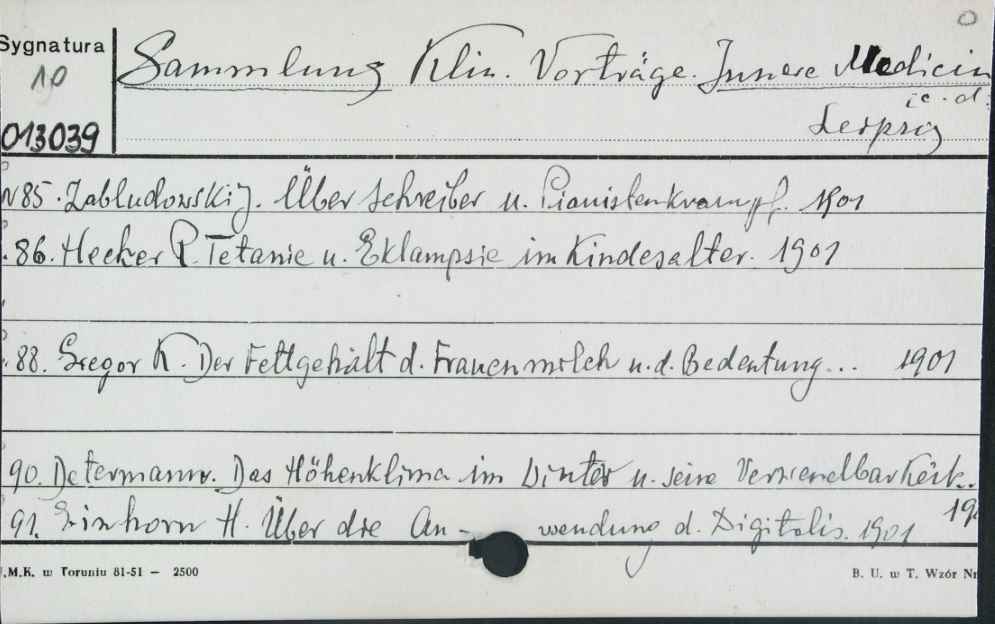 Sygnatura
10
013039
Sammlung Klin. Vorträge. Innere Medicin
c.d.
Leipzig
N 85. Zabludowski J. Über Schreiber u. Pianistenkrampf. 1901
86. Hecker R. Tetanie u. Eklampsie im Kindesalter. 1901
88. Gregor K. Der Fettgehalt d. Frauenmilch u. d. Bedeutung... 1901
90. Determann. Das Höhenklima im Winter u. seine Verwendbarkeit.
91. Einhorn H. Über die An- wendung d. Digitalis. 1901
U.M.K. w Toruniu 81-51 — 2500
B. U. w T. Wzór Nr